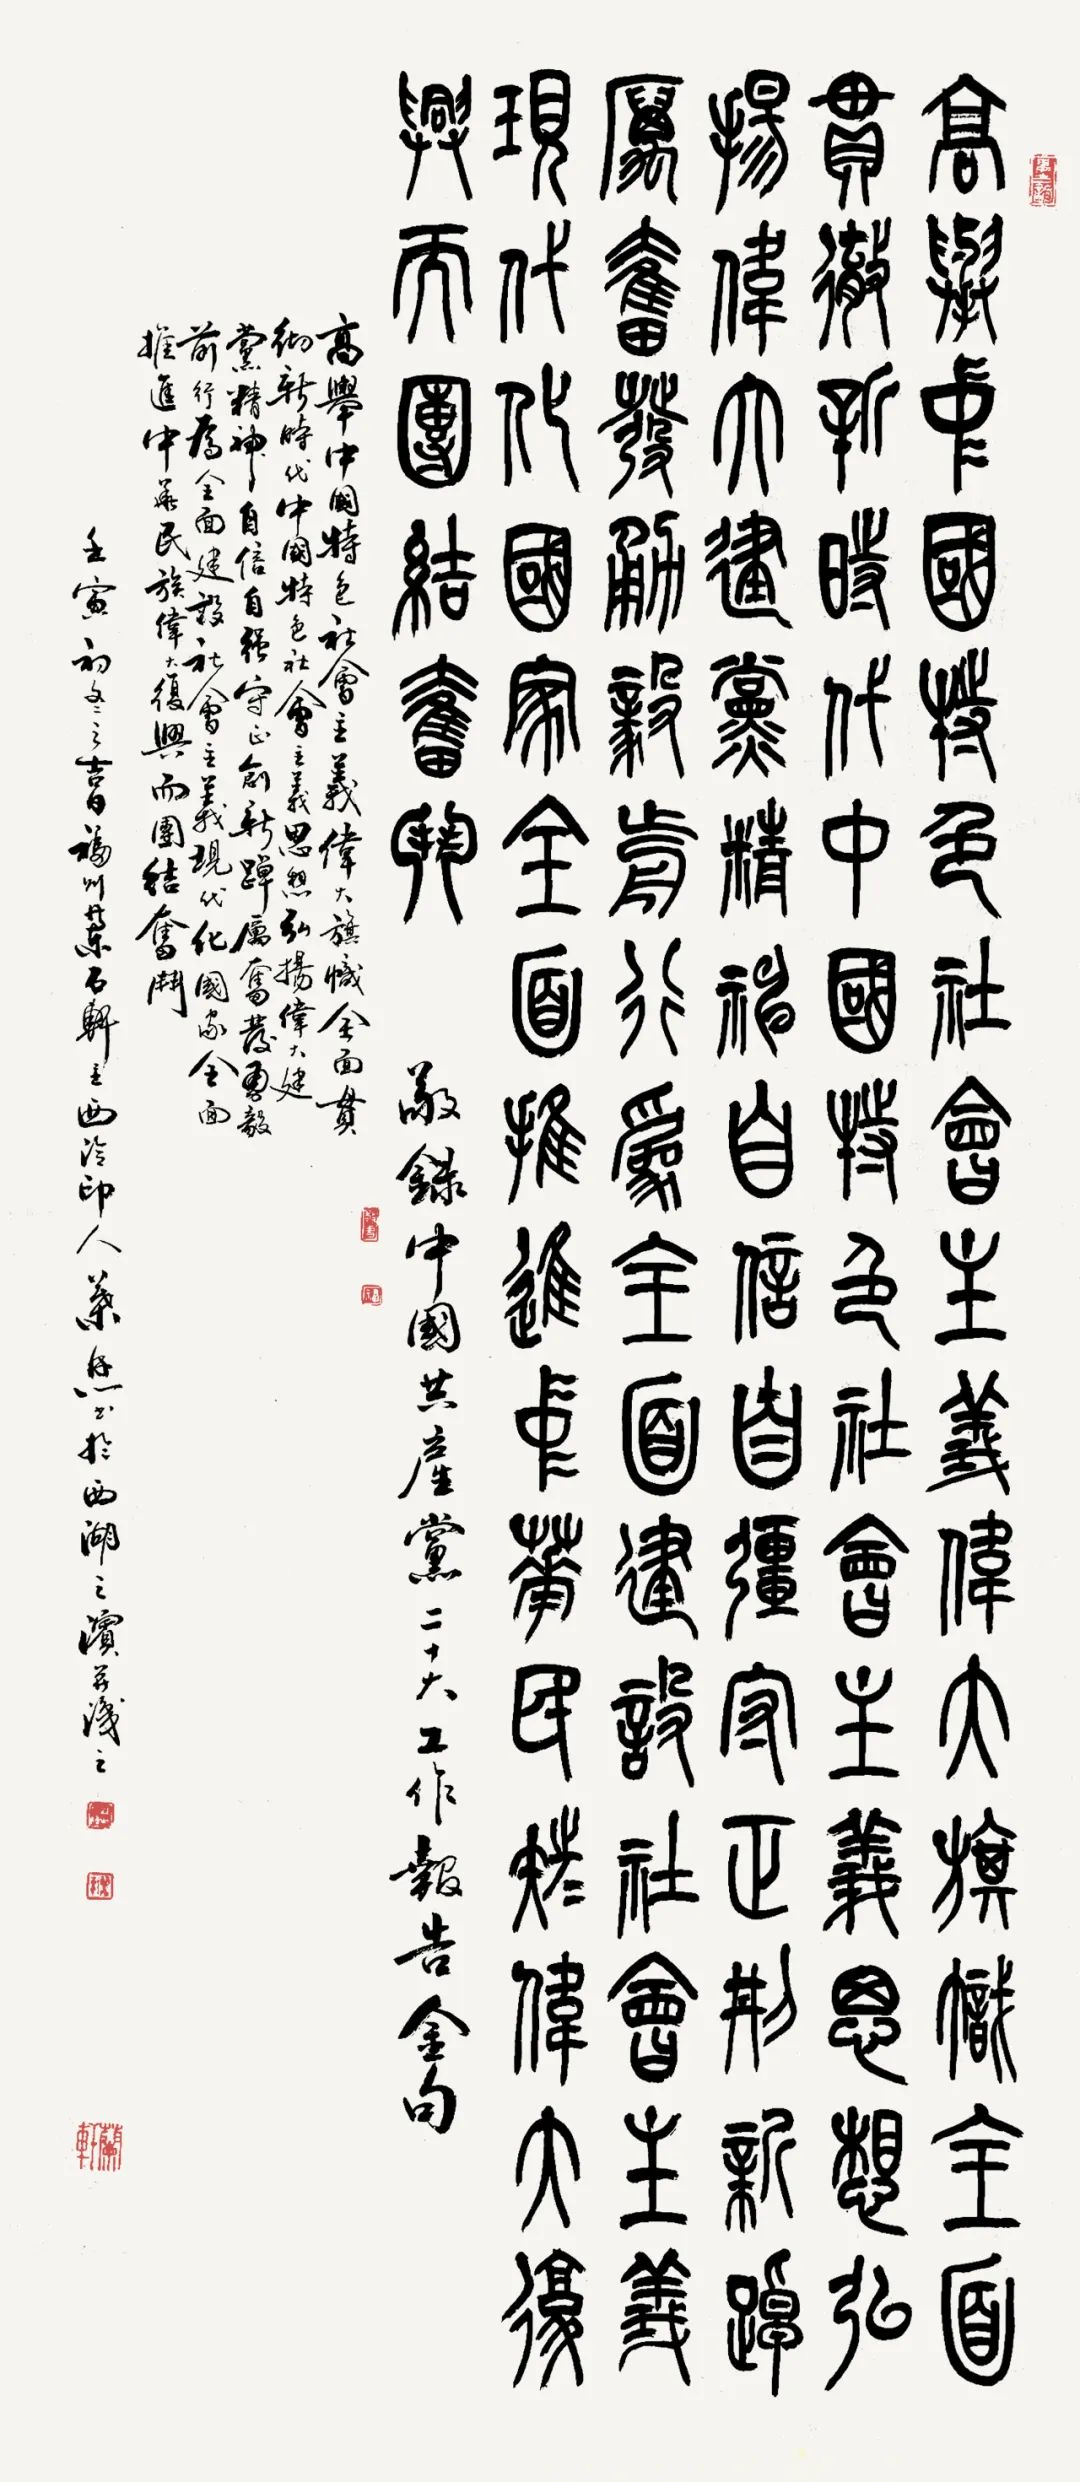 高舉中國特色社會主義偉大旗幟全面
貫徹新時代中國特色社會主義思想弘
揚偉大建黨精神自信自彊守正創新踔
厲奮發勇毅歬行爲全面建設社會主義
現代化國家全面推進中華民族偉大復
興而團結奮鬥
敬錄中國共產黨二十大工作報告金句
高舉中國特色社會主義偉大旗幟全面貫
徹新時代中國特色社會主義思想弘揚偉大建
黨精神自信自强守正創新踔厲奮發勇毅
前行爲全面建設社會主義現代化國家全面
推進中華民族偉大復興而團結奮鬥
壬寅初冬之吉福州葉石軒主西泠印人葉 書於西湖之濱並識之
蘭軒